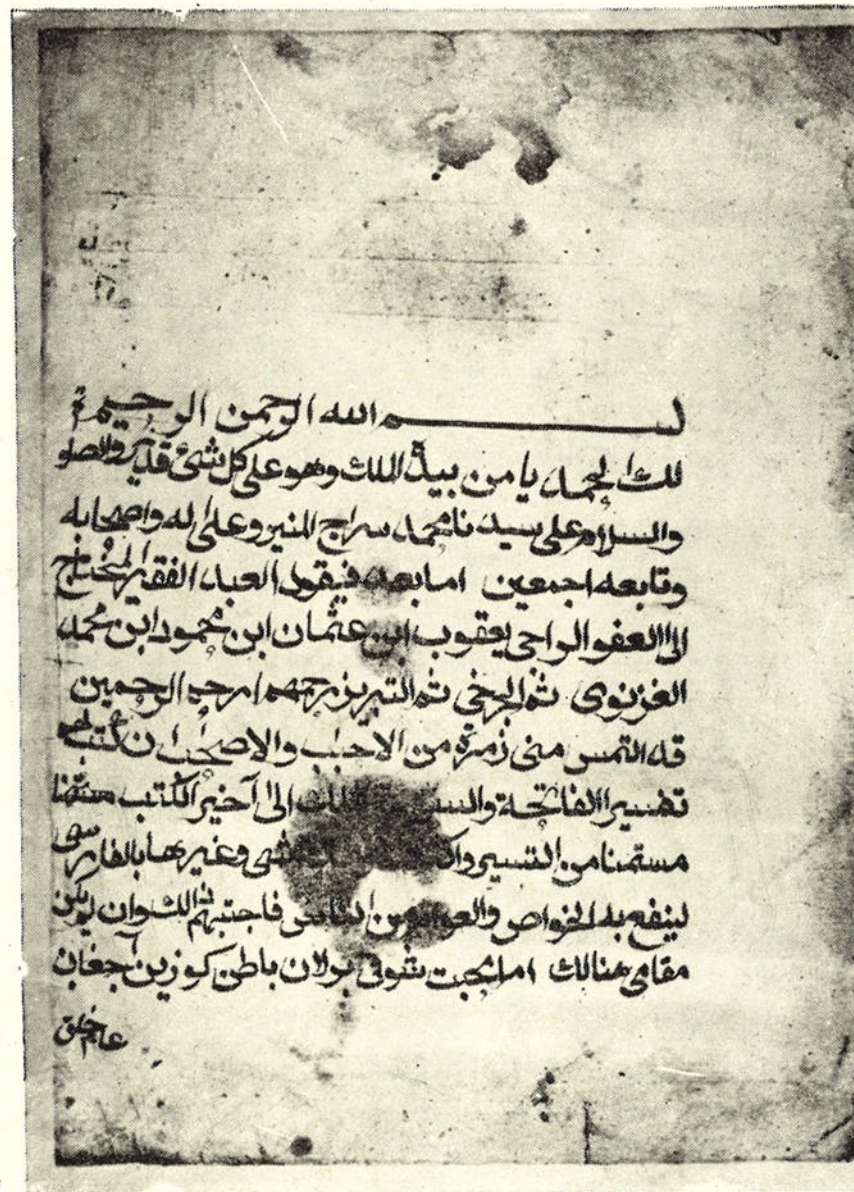 بســـــم الله الرحمن الرحيم
لك الحمد يا من بيده الملك وهو على كل شئ قدير والصلو
والسلام على سيدنا محمد سراج المنير وعلى اله واصحابه
وتابعه اجمعين اما بعد فيقول العبد الفقير المحتاج
الى العفو الراجى يعقوب ابن عثمان ابن محمود ابن محمد
الغزنوى ثم الجرخى ثم التبريز رحمهم ارحم الرحمين
قد التمس منى زمرة من الاحباب والاصحاب ان كتب لهم
تفسير الفاتحة والسـ الملك الى آخير الكتب
من التفسير وغيرها بالفارسى
لينفع به الخواص والعوام من الناس فاجتبهم ذالك وان لم يكن
مقامى هنالك اما شجت شوقى بولان باطن كوزين آجغان
عالم خلق